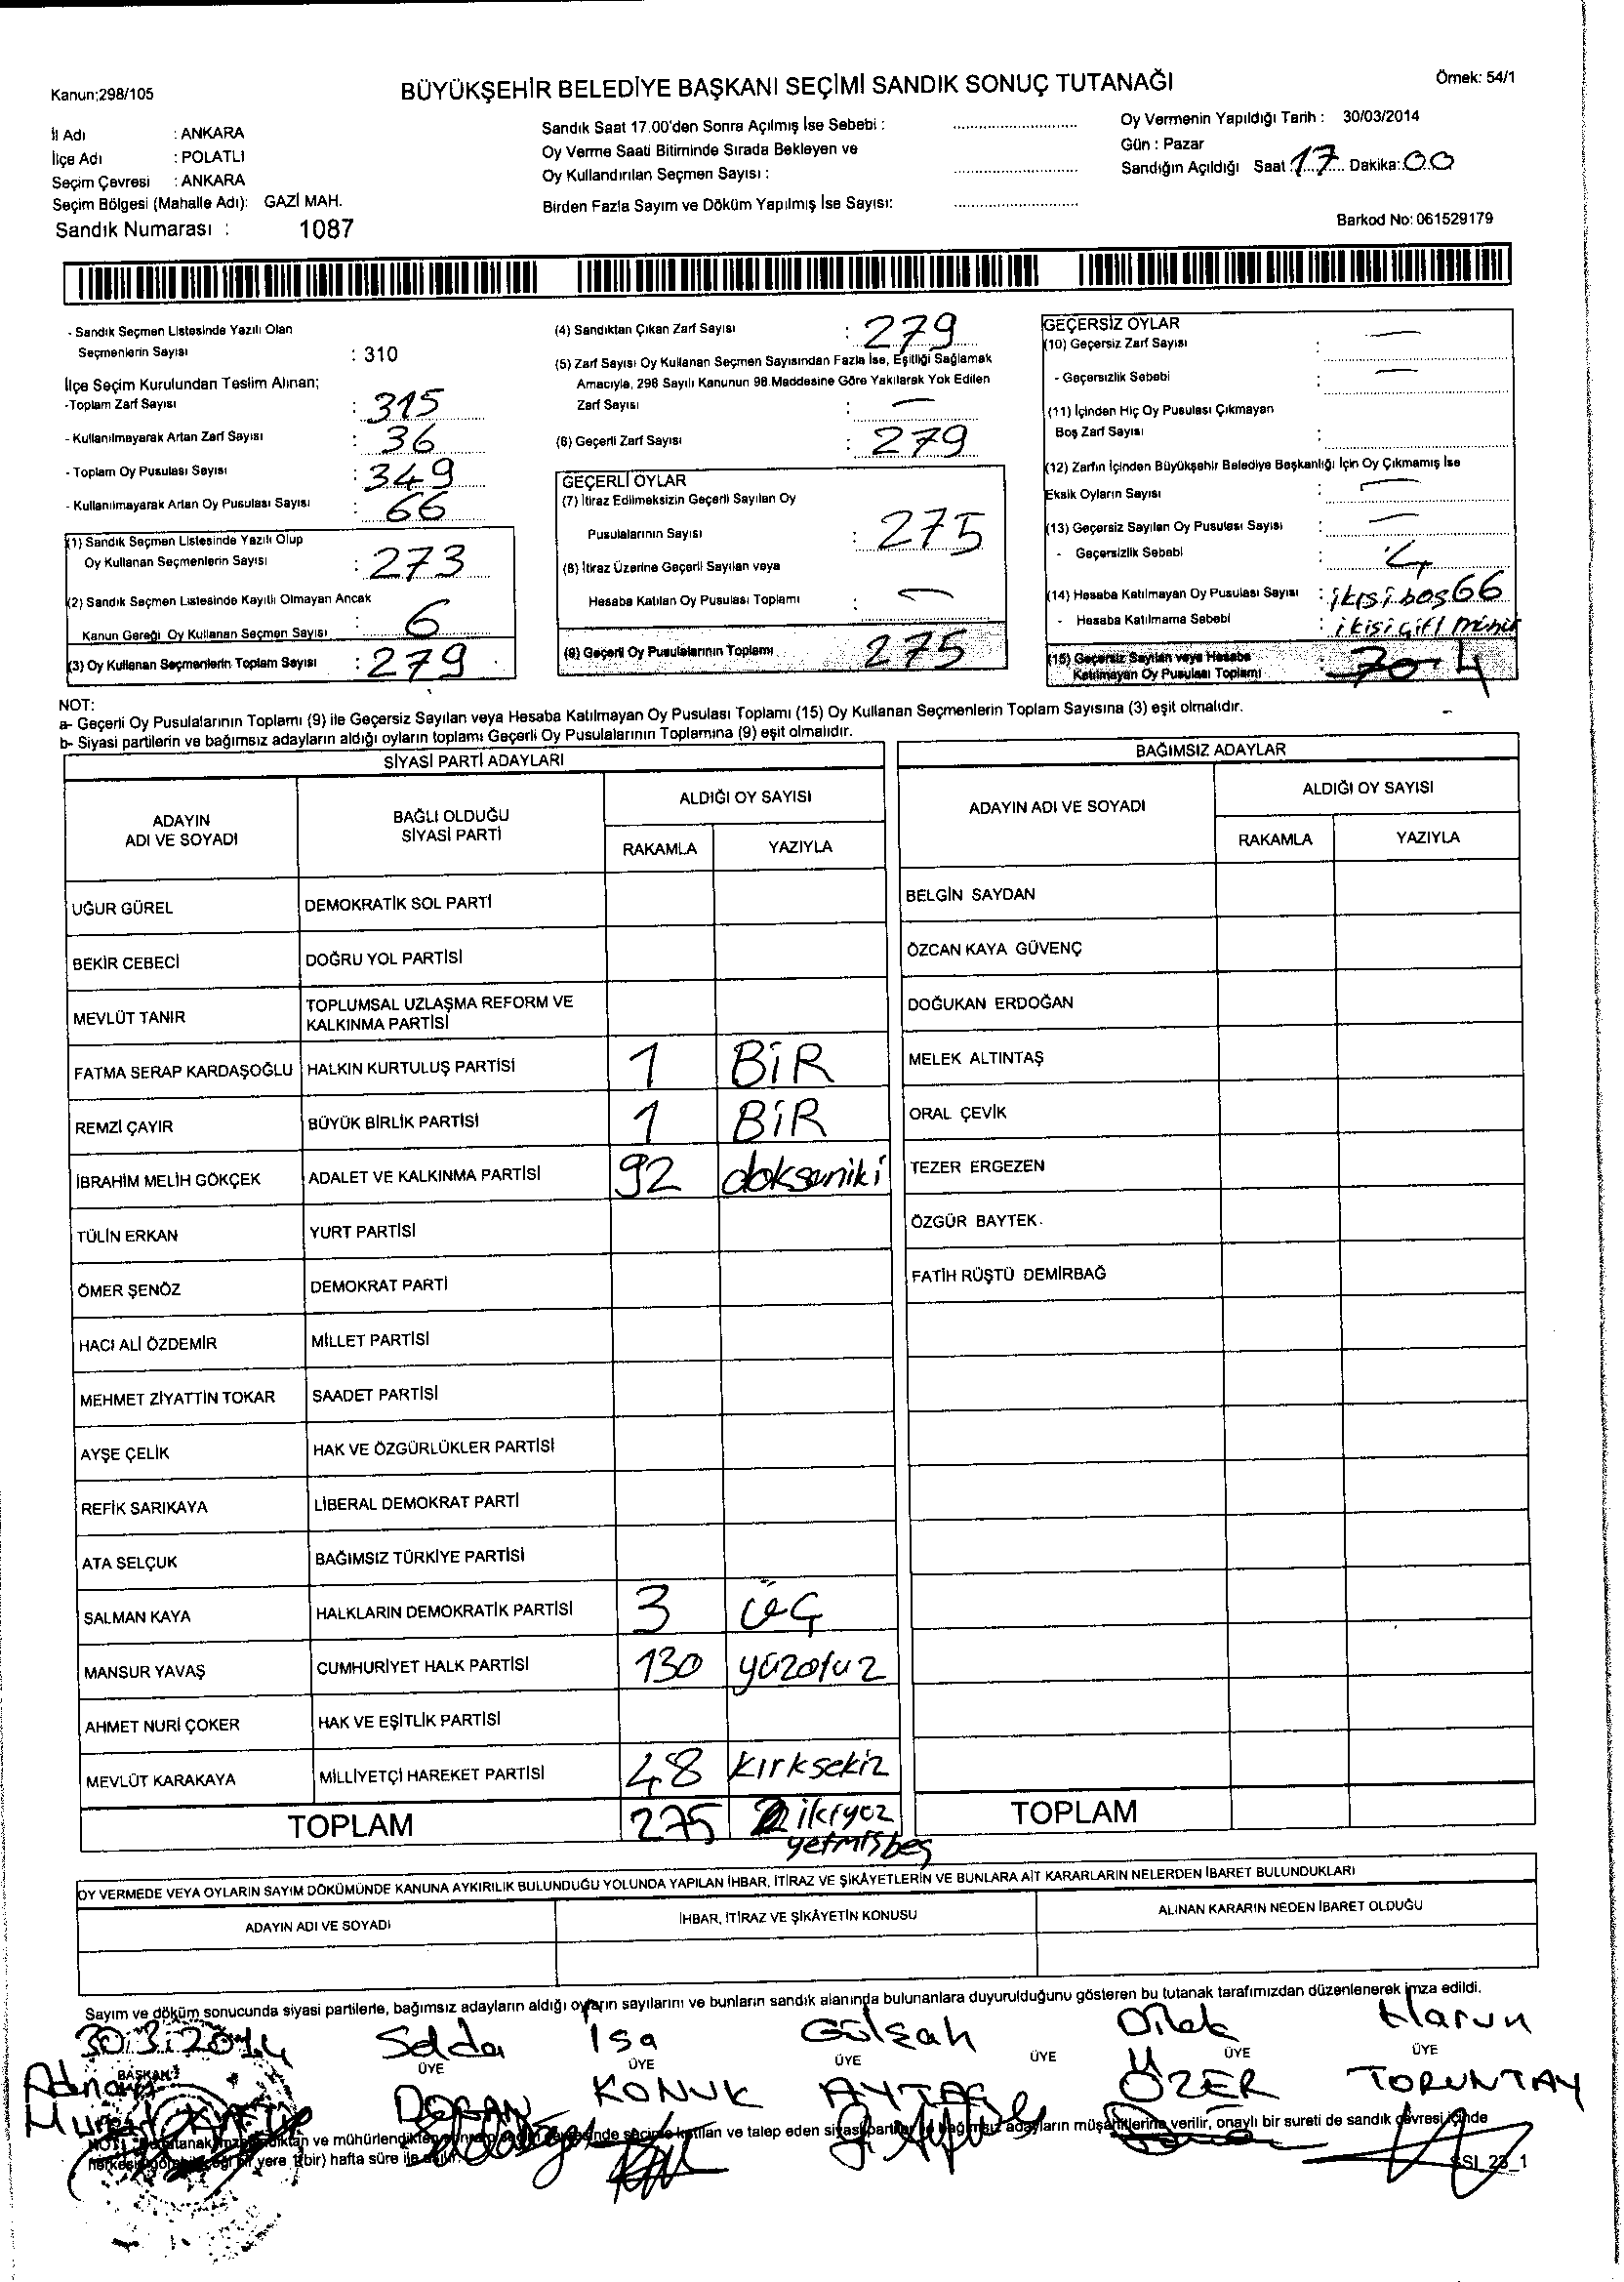 Kanun:298/105
BÜYÜKŞEHİR BELEDİYE BAŞKANI SEÇİMİ SANDIK SONUÇ TUTANAĞI
Örnek: 54/1
İl Adı : ANKARA
İlçe Adı : POLATLI
Seçim Çevresi : ANKARA
Seçim Bölgesi (Mahalle Adı): GAZİ MAH.
Sandık Numarası : 1087
Sandık Saat 17.00'den Sonra Açılmış İse Sebebi : ............
Oy Verme Saati Bitiminde Sırada Bekleyen ve
Oy Kullandırılan Seçmen Sayısı : ............
Birden Fazla Sayım ve Döküm Yapılmış İse Sayısı: ............
Oy Vermenin Yapıldığı Tarih : 30/03/2014
Gün : Pazar
Sandığın Açıldığı Saat : 17 Dakika: 00
Barkod No: 061529179
- Sandık Seçmen Listesinde Yazılı Olan
Seçmenlerin Sayısı : 310
İlçe Seçim Kurulundan Teslim Alınan;
-Toplam Zarf Sayısı : 315
- Kullanılmayarak Artan Zarf Sayısı : 36
- Toplam Oy Pusulası Sayısı : 349
- Kullanılmayarak Artan Oy Pusulası Sayısı : 66
(1) Sandık Seçmen Listesinde Yazılı Olup
Oy Kullanan Seçmenlerin Sayısı : 273
(2) Sandık Seçmen Listesinde Kayıtlı Olmayan Ancak
Kanun Gereği Oy Kullanan Seçmen Sayısı : 6
(3) Oy Kullanan Seçmenlerin Toplam Sayısı : 279
(4) Sandıktan Çıkan Zarf Sayısı : 279
(5) Zarf Sayısı Oy Kullanan Seçmen Sayısından Fazla İse, Eşitliği Sağlamak
Amacıyla, 298 Sayılı Kanunun 98.Maddesine Göre Yakılarak Yok Edilen
Zarf Sayısı : —
(6) Geçerli Zarf Sayısı : 279
GEÇERLİ OYLAR
(7) İtiraz Edilmeksizin Geçerli Sayılan Oy
Pusulalarının Sayısı : 275
(8) İtiraz Üzerine Geçerli Sayılan veya
Hesaba Katılan Oy Pusulası Toplamı : —
(9) Geçerli Oy Pusulalarının Toplamı 275
GEÇERSİZ OYLAR
(10) Geçersiz Zarf Sayısı : —
- Geçersizlik Sebebi : —
(11) İçinden Hiç Oy Pusulası Çıkmayan
Boş Zarf Sayısı :
(12) Zarfın İçinden Büyükşehir Belediye Başkanlığı İçin Oy Çıkmamış İse
Eksik Oyların Sayısı : —
(13) Geçersiz Sayılan Oy Pusulası Sayısı : —
- Geçersizlik Sebebi : 4
(14) Hesaba Katılmayan Oy Pusulası Sayısı : ikisi boş 66
- Hesaba Katılmama Sebebi : ikisi çift
(15) Geçersiz Sayılan veya Hesaba
Katılmayan Oy Pusulası Toplamı 70 4
NOT:
a- Geçerli Oy Pusulalarının Toplamı (9) ile Geçersiz Sayılan veya Hesaba Katılmayan Oy Pusulası Toplamı (15) Oy Kullanan Seçmenlerin Toplam Sayısına (3) eşit olmalıdır.
b- Siyasi partilerin ve bağımsız adayların aldığı oyların toplamı Geçerli Oy Pusulalarının Toplamına (9) eşit olmalıdır.
SİYASİ PARTİ ADAYLARI
ADAYIN ADI VE SOYADI
BAĞLI OLDUĞU SİYASİ PARTİ
ALDIĞI OY SAYISI
RAKAMLA YAZIYLA
UĞUR GÜREL DEMOKRATİK SOL PARTİ
BEKİR CEBECİ DOĞRU YOL PARTİSİ
MEVLÜT TANIR TOPLUMSAL UZLAŞMA REFORM VE KALKINMA PARTİSİ
FATMA SERAP KARDAŞOĞLU HALKIN KURTULUŞ PARTİSİ 1 BİR
REMZİ ÇAYIR BÜYÜK BİRLİK PARTİSİ 1 BİR
İBRAHİM MELİH GÖKÇEK ADALET VE KALKINMA PARTİSİ 92 doksaniki
TÜLİN ERKAN YURT PARTİSİ
ÖMER ŞENÖZ DEMOKRAT PARTİ
HACI ALİ ÖZDEMİR MİLLET PARTİSİ
MEHMET ZİYATTİN TOKAR SAADET PARTİSİ
AYŞE ÇELİK HAK VE ÖZGÜRLÜKLER PARTİSİ
REFİK SARIKAYA LİBERAL DEMOKRAT PARTİ
ATA SELÇUK BAĞIMSIZ TÜRKİYE PARTİSİ
SALMAN KAYA HALKLARIN DEMOKRATİK PARTİSİ 3 üÇ
MANSUR YAVAŞ CUMHURİYET HALK PARTİSİ 130 yüzotuz
AHMET NURİ ÇOKER HAK VE EŞİTLİK PARTİSİ
MEVLÜT KARAKAYA MİLLİYETÇİ HAREKET PARTİSİ 48 kırksekiz
TOPLAM 275 ikiyüz
yetmişbeş
BAĞIMSIZ ADAYLAR
ADAYIN ADI VE SOYADI
ALDIĞI OY SAYISI
RAKAMLA YAZIYLA
BELGİN SAYDAN
ÖZCAN KAYA GÜVENÇ
DOĞUKAN ERDOĞAN
MELEK ALTINTAŞ
ORAL ÇEVİK
TEZER ERGEZEN
ÖZGÜR BAYTEK
FATİH RÜŞTÜ DEMİRBAĞ
TOPLAM
OY VERMEDE VEYA OYLARIN SAYIM DÖKÜMÜNDE KANUNA AYKIRILIK BULUNDUĞU YOLUNDA YAPILAN İHBAR, İTİRAZ VE ŞİKÂYETLERİN VE BUNLARA AİT KARARLARIN NELERDEN İBARET BULUNDUKLARI
ADAYIN ADI VE SOYADI
İHBAR, İTİRAZ VE ŞİKÂYETİN KONUSU
ALINAN KARARIN NEDEN İBARET OLDUĞU
Sayım ve döküm sonucunda siyasi partilerle, bağımsız adayların aldığı oyların sayılarını ve bunların sandık alanında bulunanlara duyurulduğunu gösteren bu tutanak tarafımızdan düzenlenerek imza edildi.
30.3.2014 Selda Isa Gülşah Dilek Harun
BAŞKAN ÜYE ÜYE ÜYE ÜYE ÜYE ÜYE
Adnan DORAN KONUK AYTAÇ ÖZER TORUNTAY
ve mühürlendikten katılan ve talep eden siyasi bağımsız adayların müşahitlerine verilir, onaylı bir sureti de sandık çevresi içinde
bir yere 1(bir) hafta süre ile asılır.
SSI_23_1